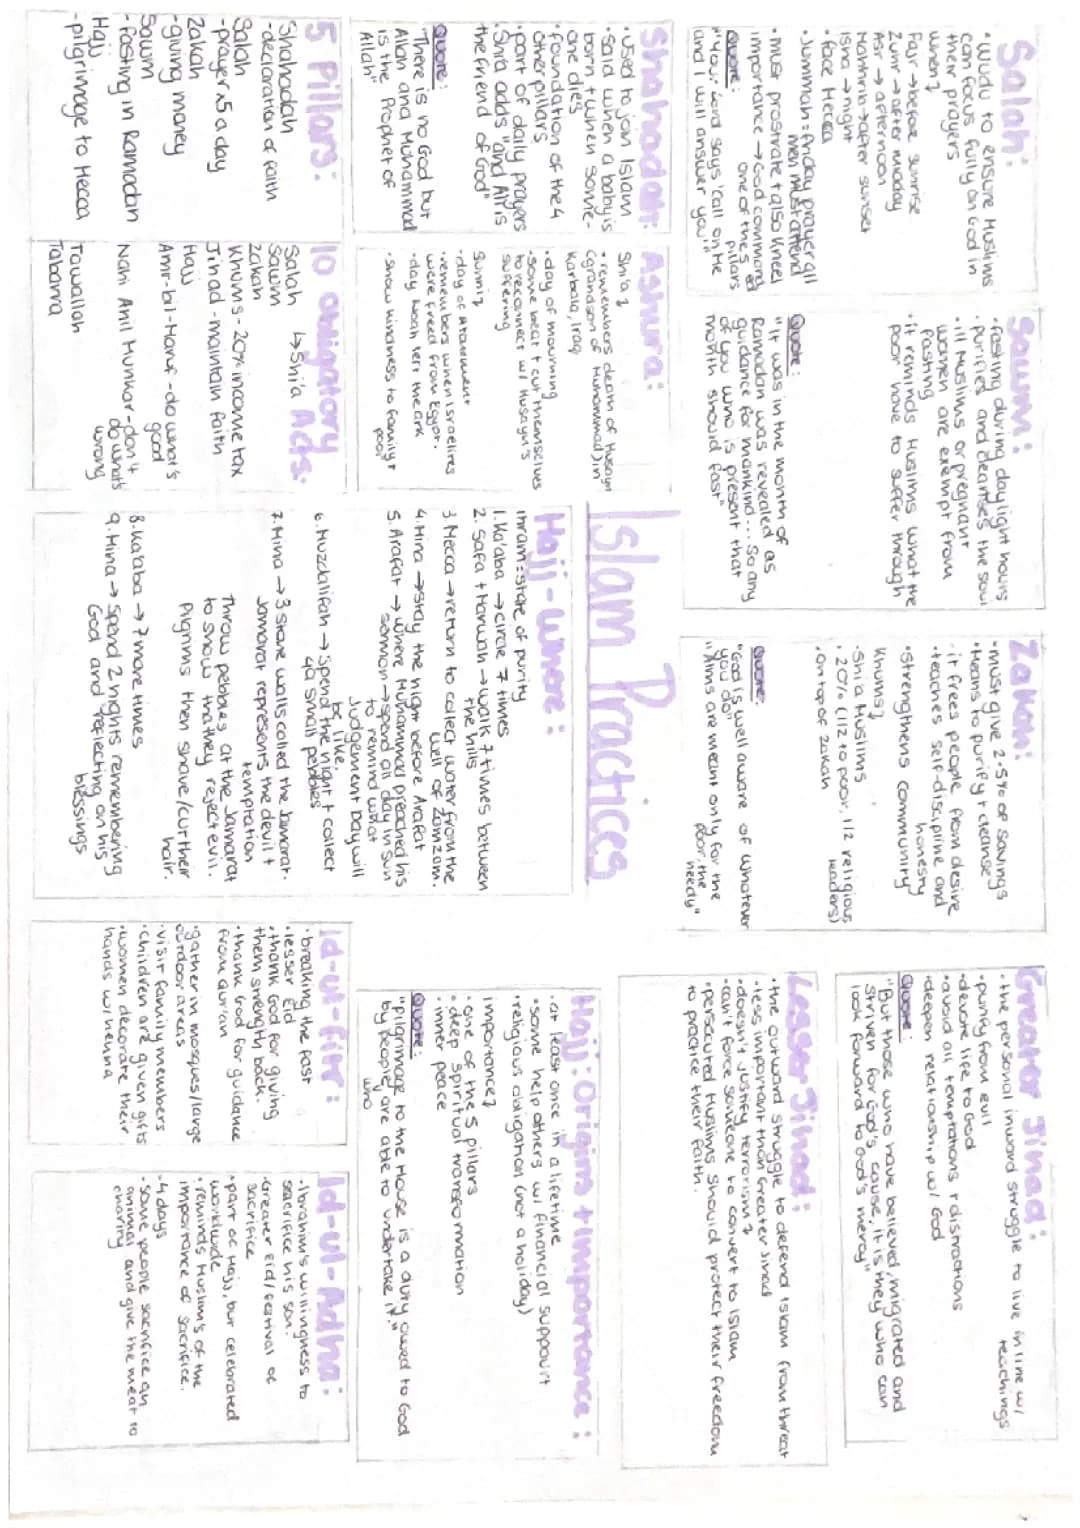 Salah:
• Wudu to ensure Muslims
can focus fully on God in
their prayers
When?
Fajr → before sunrise
Zuhr → after midday
Asr → afternoon
Maghrib → after sunset
Isha → night
• face Mecca
• Jummah = friday prayer all
men must attend
• must prostrate + also kneel
importance → God commanded
one of the 5 pillars
Quote:
"Your Lord says 'call on Me
and I will answer you'"
Sawm:
• fasting during daylight hours
• purifies and cleanses the soul
• ill Muslims or pregnant
women are exempt from
fasting
• it reminds Muslims what the
poor have to suffer through
Quote:
"It was in the month of
Ramadan was revealed as
guidance for mankind... So any
of you who is present that
month should fast"
Zakah:
• must give 2.5% of savings
• means to purify + cleanse
• it frees people from desire
• teaches self-discipline and
honesty
• strengthens community
Khums?
• Shi'a Muslims
• 20% (1/2 to poor, 1/2 religious
leaders)
• on top of zakah
Quote:
"God is well aware of whatever
you do"
"Alms are meant only for the
poor, the
needy"
Greater Jihad:
• the personal inward struggle to live in line w/
teachings
• purify from evil
• devote life to God
• avoid all temptations + distractions
• deepen relationship w/ God
Quote:
"But those who have believed, migrated and
striven for God's cause, it is they who can
look forward to God's mercy"
Lesser Jihad:
• the outward struggle to defend Islam from threat
• less important than Greater Jihad
• doesn't justify terrorism?
• can't force someone to convert to Islam
• persecuted Muslims should protect their freedom
to practice their faith.
Shahadah:
• used to join Islam
• said when a baby is
born + when some-
one dies
• foundation of the 4
other pillars
• part of daily prayers
• Shi'a adds "and Ali is
the friend of God"
Quote:
"There is no God but
Allah and Muhammad
is the Prophet of
Allah"
Ashura:
Shi'a?
• remembers death of Husayn
(grandson of Muhammad) in
Karbala, Iraq
• day of mourning
• some beat + cut themselves
to reconnect w/ Husayn's
suffering
Sunni?
• day of atonement
• remembers when Israelites
were freed from Egypt.
• day Noah left the ark
• show kindness to family +
poor
Islam Practices
Hajj - where:
Ihram = state of purity
1. Ka'aba → circle 7 times
2. Safa + Marwah → walk 7 times between
the hills
3. Mecca → return to collect water from the
well of Zamzam.
4. Mina → stay the night before Arafat
5. Arafat → where Muhammad preached his
sermon → spend all day in sun
to remind what
Judgement Day will
be like.
6. Muzdalifah → spend the night + collect
49 small pebbles
7. Mina → 3 stone walls called the Jamarat.
Jamarat represents the devil +
temptation
Throw pebbles at the Jamarat
to show that they reject evil.
Pilgrims then shave/cut their
hair.
8. Ka'aba → 7 more times
9. Mina → Spend 2 nights remembering
God and reflecting on his
blessings
Hajj: Origins + Importance:
• at least once in a lifetime
• some help others w/ financial support
• religious obligation (not a holiday)
importance?
• one of the 5 pillars
• deep spiritual transformation
• inner peace
Quote:
"pilgrimage to the House is a duty owed to God
by people who are able to undertake it."
5 Pillars:
Shahadah
-declaration of faith
Salah
-prayer x5 a day
Zakah
-giving money
Sawm
-fasting in Ramadan
Hajj
-pilgrimage to Mecca
10 obligatory
↳ Shi'a Acts.
Salah
Sawm
Zakah
Khums - 20% income tax
Jihad - maintain faith
Hajj
Amr-bi-Maruf - do what's
good
Nahi Anil Munkar - don't
do what's
wrong
Tawallah
Tabarra
Id-ul-fitr:
• breaking the fast
• lesser Eid
• thank God for giving
them strength back.
• thank God for guidance
from Qur'an
• gather in mosques/large
outdoor areas
• visit family members
• children are given gifts
• women decorate their
hands w/ henna
Id-ul-Adha:
• Ibrahim's willingness to
sacrifice his son.
Greater Eid/festival of
sacrifice
• part of Hajj, but celebrated
worldwide
• reminds Muslim's of the
importance of sacrifice.
• 4 days
• some people sacrifice an
animal and give the meat to
charity